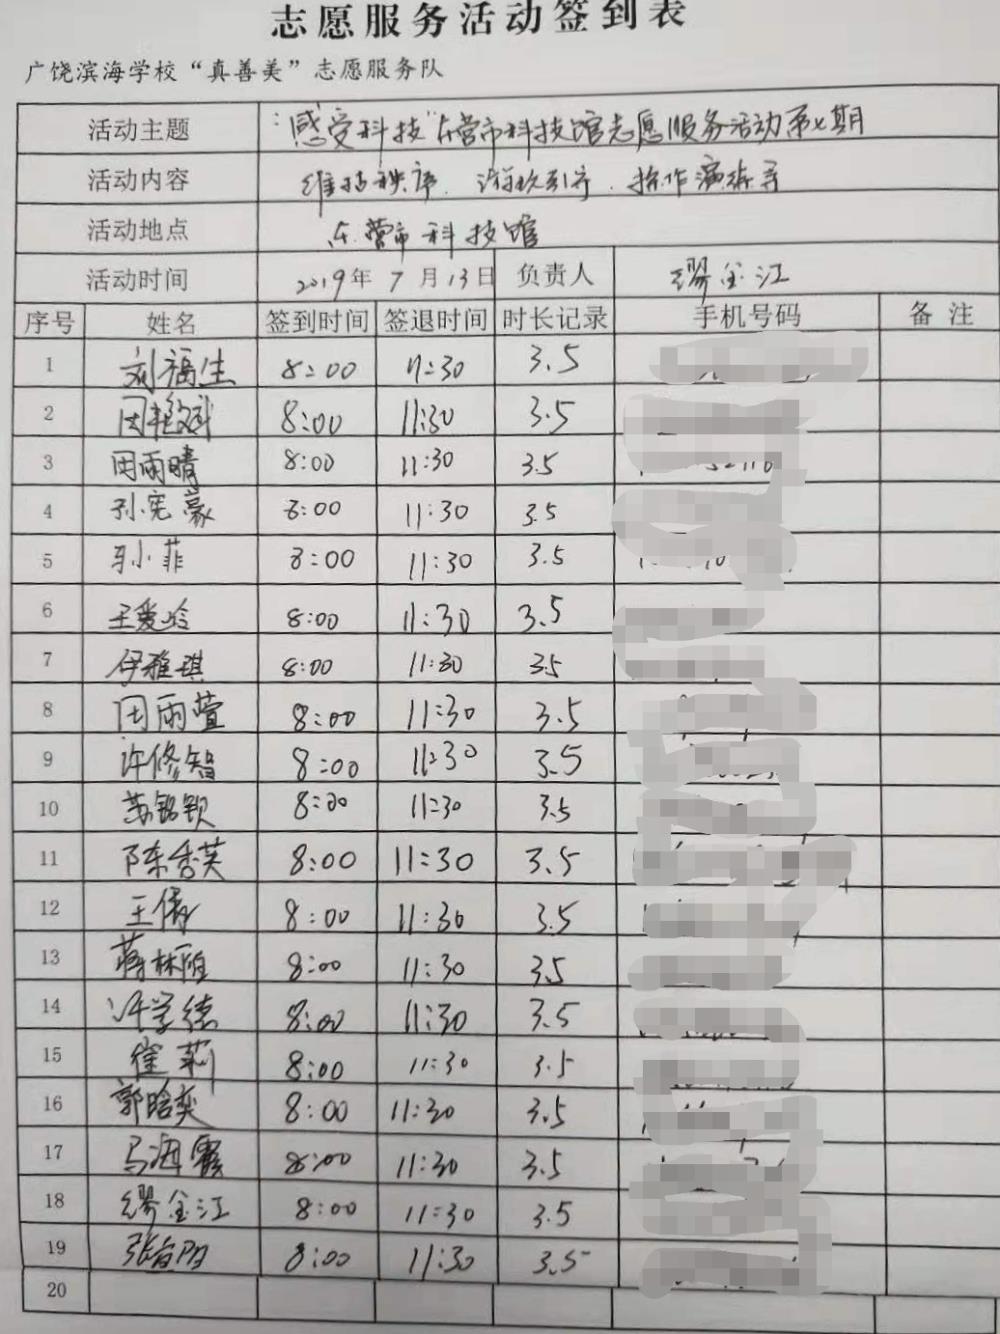 志愿服务活动签到表
广饶滨海学校“真善美”志愿服务队
活动主题 “感受科技”东营市科技馆志愿服务活动第七期
活动内容 维持秩序、游玩引导、操作演练等
活动地点 东营市科技馆
活动时间 2019年7月13日 负责人 缪金江
序号 姓名 签到时间 签退时间 时长记录 手机号码 备注
1 刘福生 8:00 11:30 3.5
2 8:00 11:30 3.5
3 田雨晴 8:00 11:30 3.5
4 孙宪豪 8:00 11:30 3.5
5 小菲 8:00 11:30 3.5
6 王爱玲 8:00 11:30 3.5
7 伊雅琪 8:00 11:30 3.5
8 田雨萱 8:00 11:30 3.5
9 许修智 8:00 11:30 3.5
10 苏铭 8:00 11:30 3.5
11 陈秀芙 8:00 11:30 3.5
12 王倩 8:00 11:30 3.5
13 蒋林 8:00 11:30 3.5
14 许学德 8:00 11:30 3.5
15 崔莉 8:00 11:30 3.5
16 郭晗奕 8:00 11:30 3.5
17 马海霞 8:00 11:30 3.5
18 缪金江 8:00 11:30 3.5
19 张 8:00 11:30 3.5
20